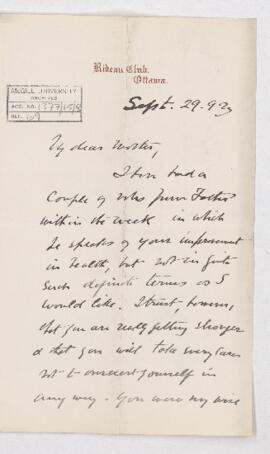 Rideau Club,
Ottawa.
McGILL UNIVERSITY
ARCHIVES
ACC. NO.
REF.
Sept. 29. 93
My dear
I have had a
couple of notes from
within the week in which
he speaks of your improvement
in health, but not in quite
such definite terms as I
would like. I trust, however,
that you are really getting stronger
& that you will take every care
not to overexert yourself in
any way. You were very wise